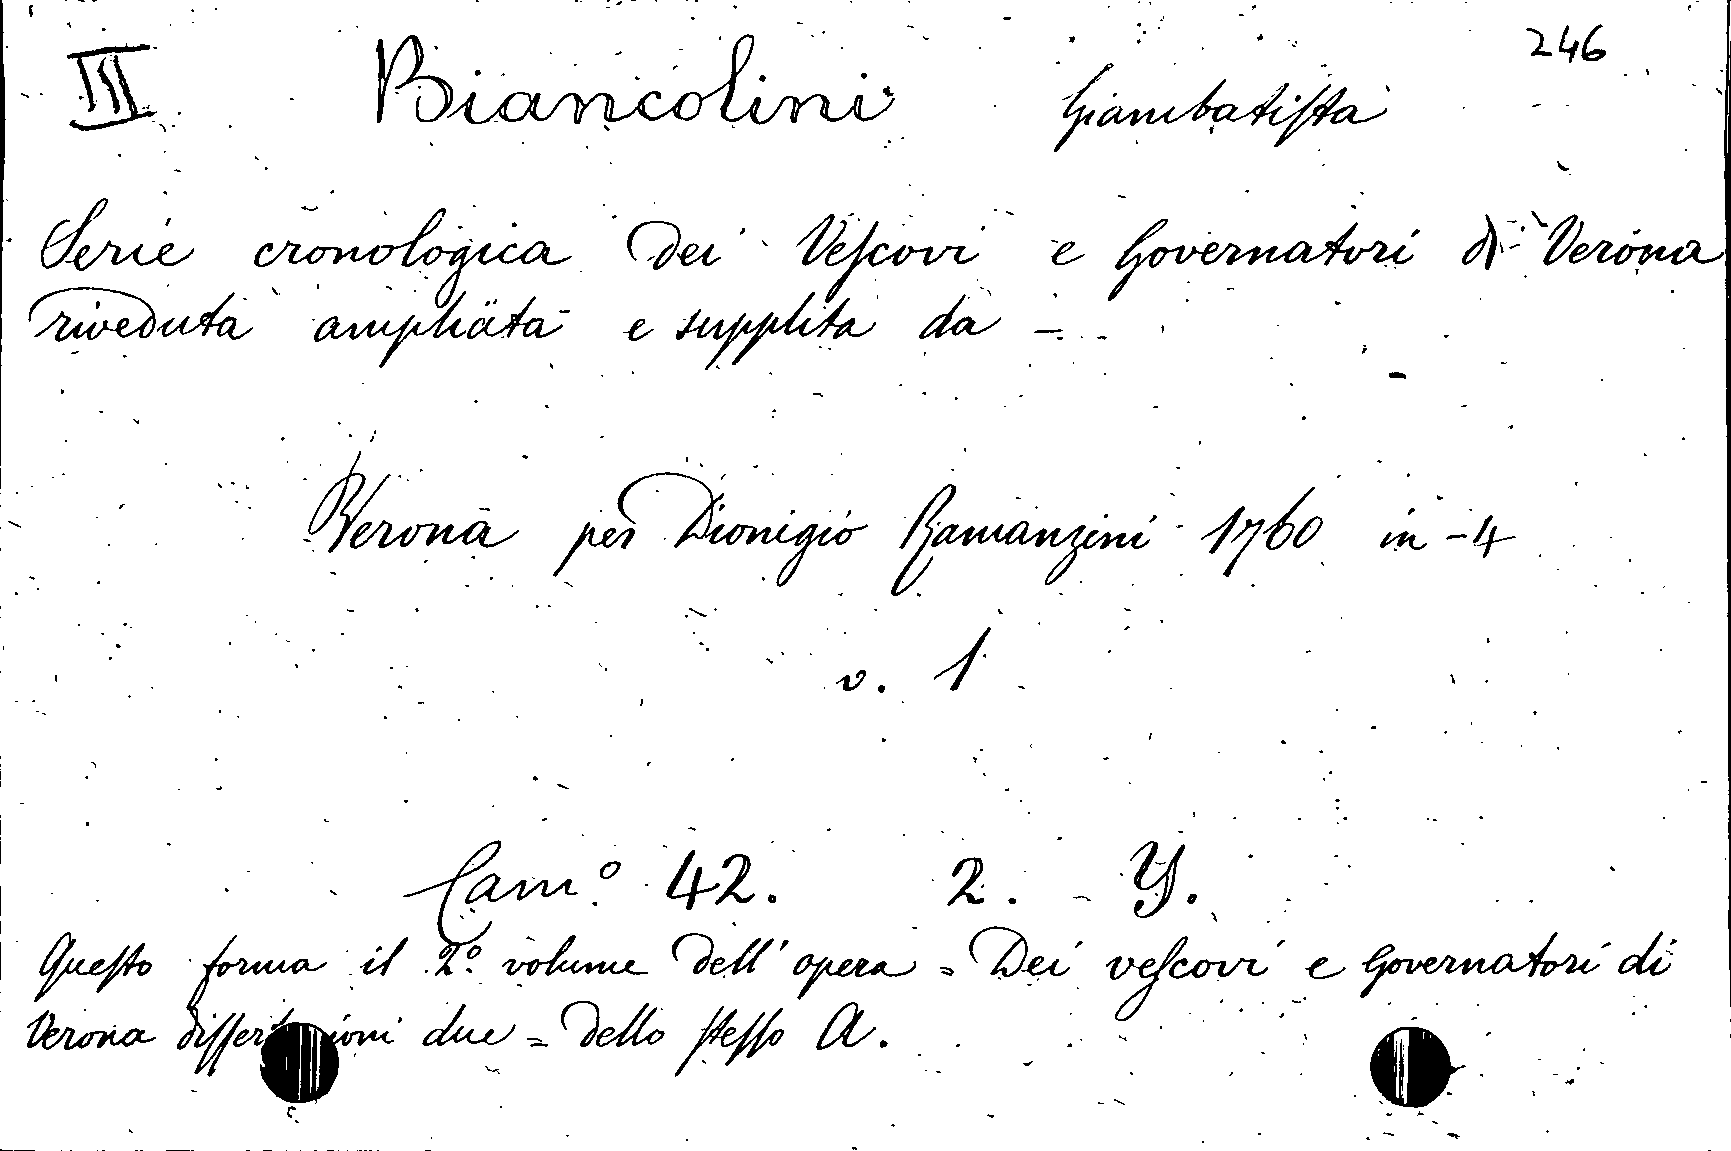 246
III Biancolini Giambatista
Serie cronologica dei Vescovi e Governatori di Verona
riveduta ampliata e supplita da -
Verona per Dionigio Ramanzini 1760 in-4
v. 1
Cam.º 42. 2. Y.
Questo forma il 2º volume dell'opera = Dei vescovi e Governatori di
Verona due = dello stesso A.